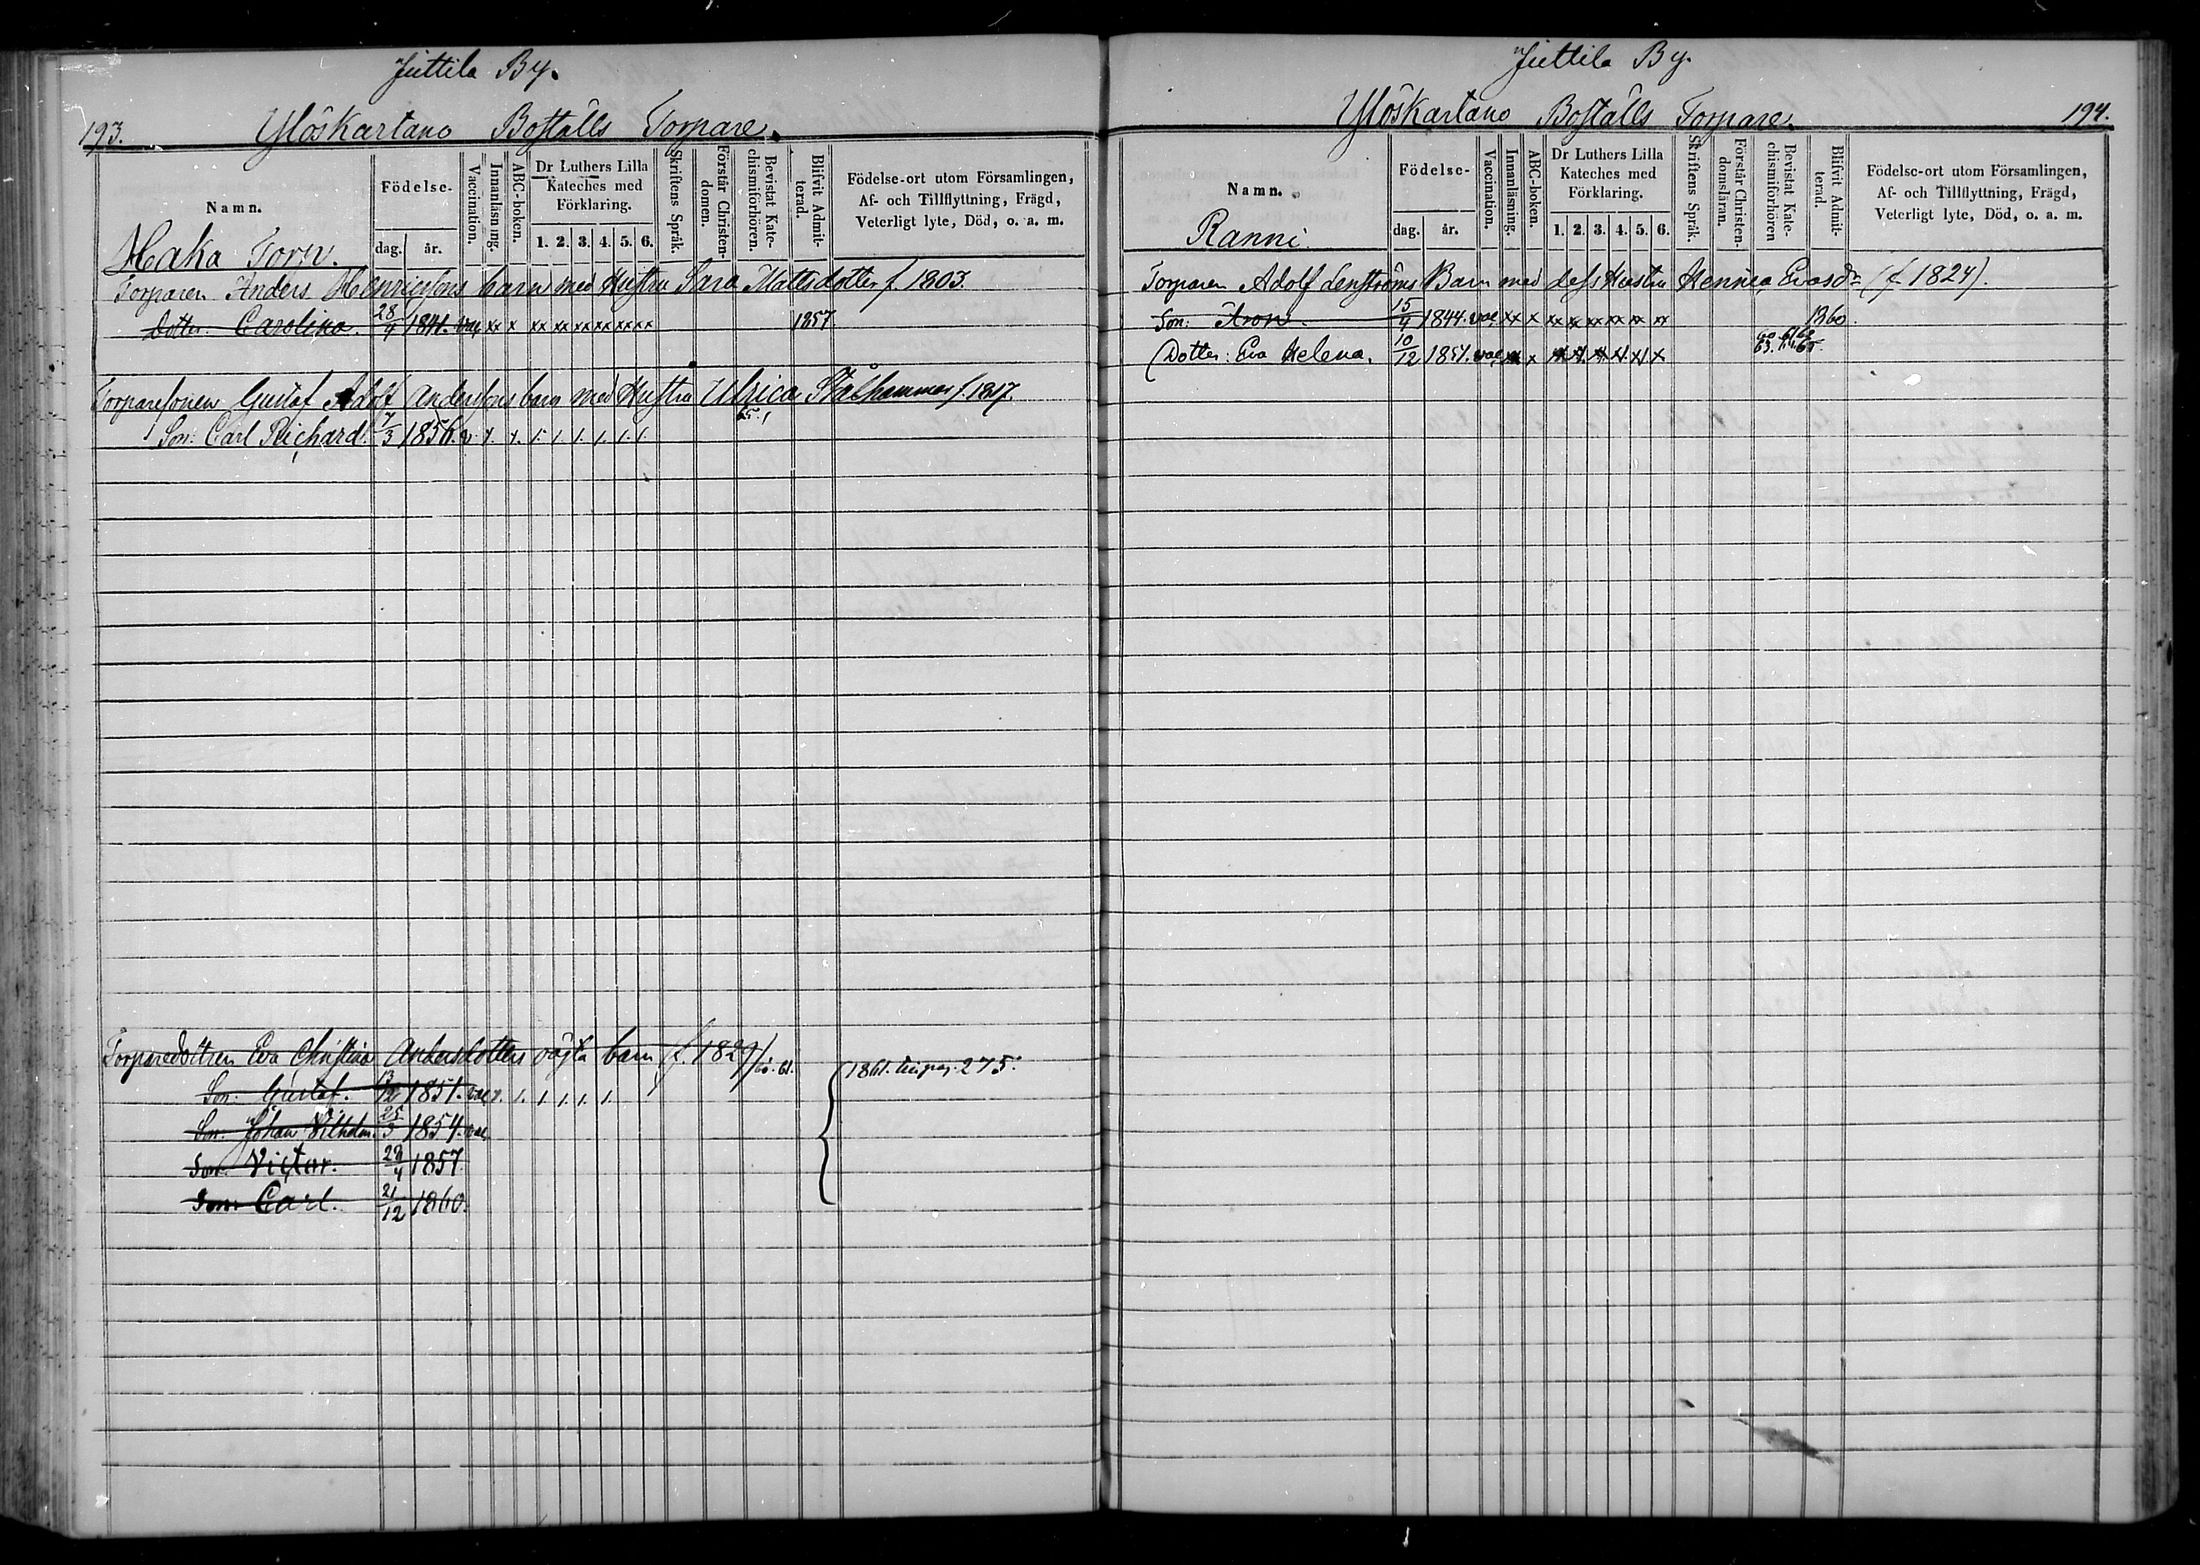 Juttila By.
193. Ylöskartano Boställs Torpare.
Namn.
Födelse-
dag. år.
Vaccination.
Innanläsning.
ABC-boken.
Dr Luthers Lilla
Kateches med
Förklaring.
1. 2. 3. 4. 5. 6.
Skriftens Språk.
Förstår Christen-
domen.
Bevistat Kate-
chismiförhören.
Blifvit Admit-
terad.
Födelse-ort utom Församlingen,
Af- och Tillflyttning, Frägd,
Veterligt lyte, Död, o. a. m.
Haka Torp.
Torparen Anders Henricssons barn med Hustru Sara Matsdotter f. 1803.
Dotter: Carolina. 28/4 1841. vac xx x xx xx xx xx xx xx 1857
Torparesonen Gustaf Adolf Anderssons barn med Hustru Ulrica Stålhammar f. 1817.
65.
Son: Carl Richard. 7/3 1856. v. x. x. 1. 1. 1. 1. 1. 1.
Torparedottren Eva Christina Andersdotters oägta barn (f. 1829) 60. 61.
Son: Gustaf. 13/12 1851. vac x. 1. 1. 1. 1. 1. 1861. pag. 275.
Son: Johan Vilhelm. 25/3 1854. vac
Son: Victor. 28/4 1857.
Son: Carl. 21/12 1860.
Juttila By.
Ylöskartano Boställs Torpare. 194.
Namn.
Födelse-
dag. år.
Vaccination.
Innanläsning.
ABC-boken.
Dr Luthers Lilla
Kateches med
Förklaring.
1. 2. 3. 4. 5. 6.
Skriftens Språk.
Förstår Christen-
domsläran.
Bevistat Kate-
chismiförhören
Blifvit Admit-
terad.
Födelse-ort utom Församlingen,
Af- och Tillflyttning, Frägd,
Veterligt lyte, Död, o. a. m.
Ranni.
Torparen Adolf Lenströms Barn med dess Hustru Henrica Evasdr (f. 1824).
Son: Aron. 15/4 1844. vac xx x xx xx xx xx xx xx 1860.
Dotter: Eva Helena. 10/12 1851. vac x x x x x x x x 63. 65.